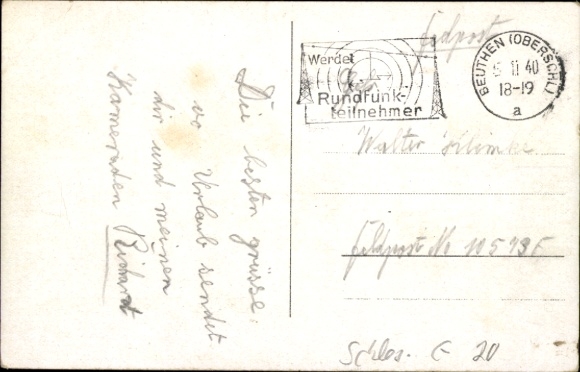 Die besten grüsse.
vo Urlaub sendet
dir und meinen
Kameraden Richard
Feldpost
Werdet
Rundfunk-
teilnehmer
BEUTHEN (OBERSCHL)
11 40
18-19
a
Walter
Feldpost No 10573F
Schles. G 20